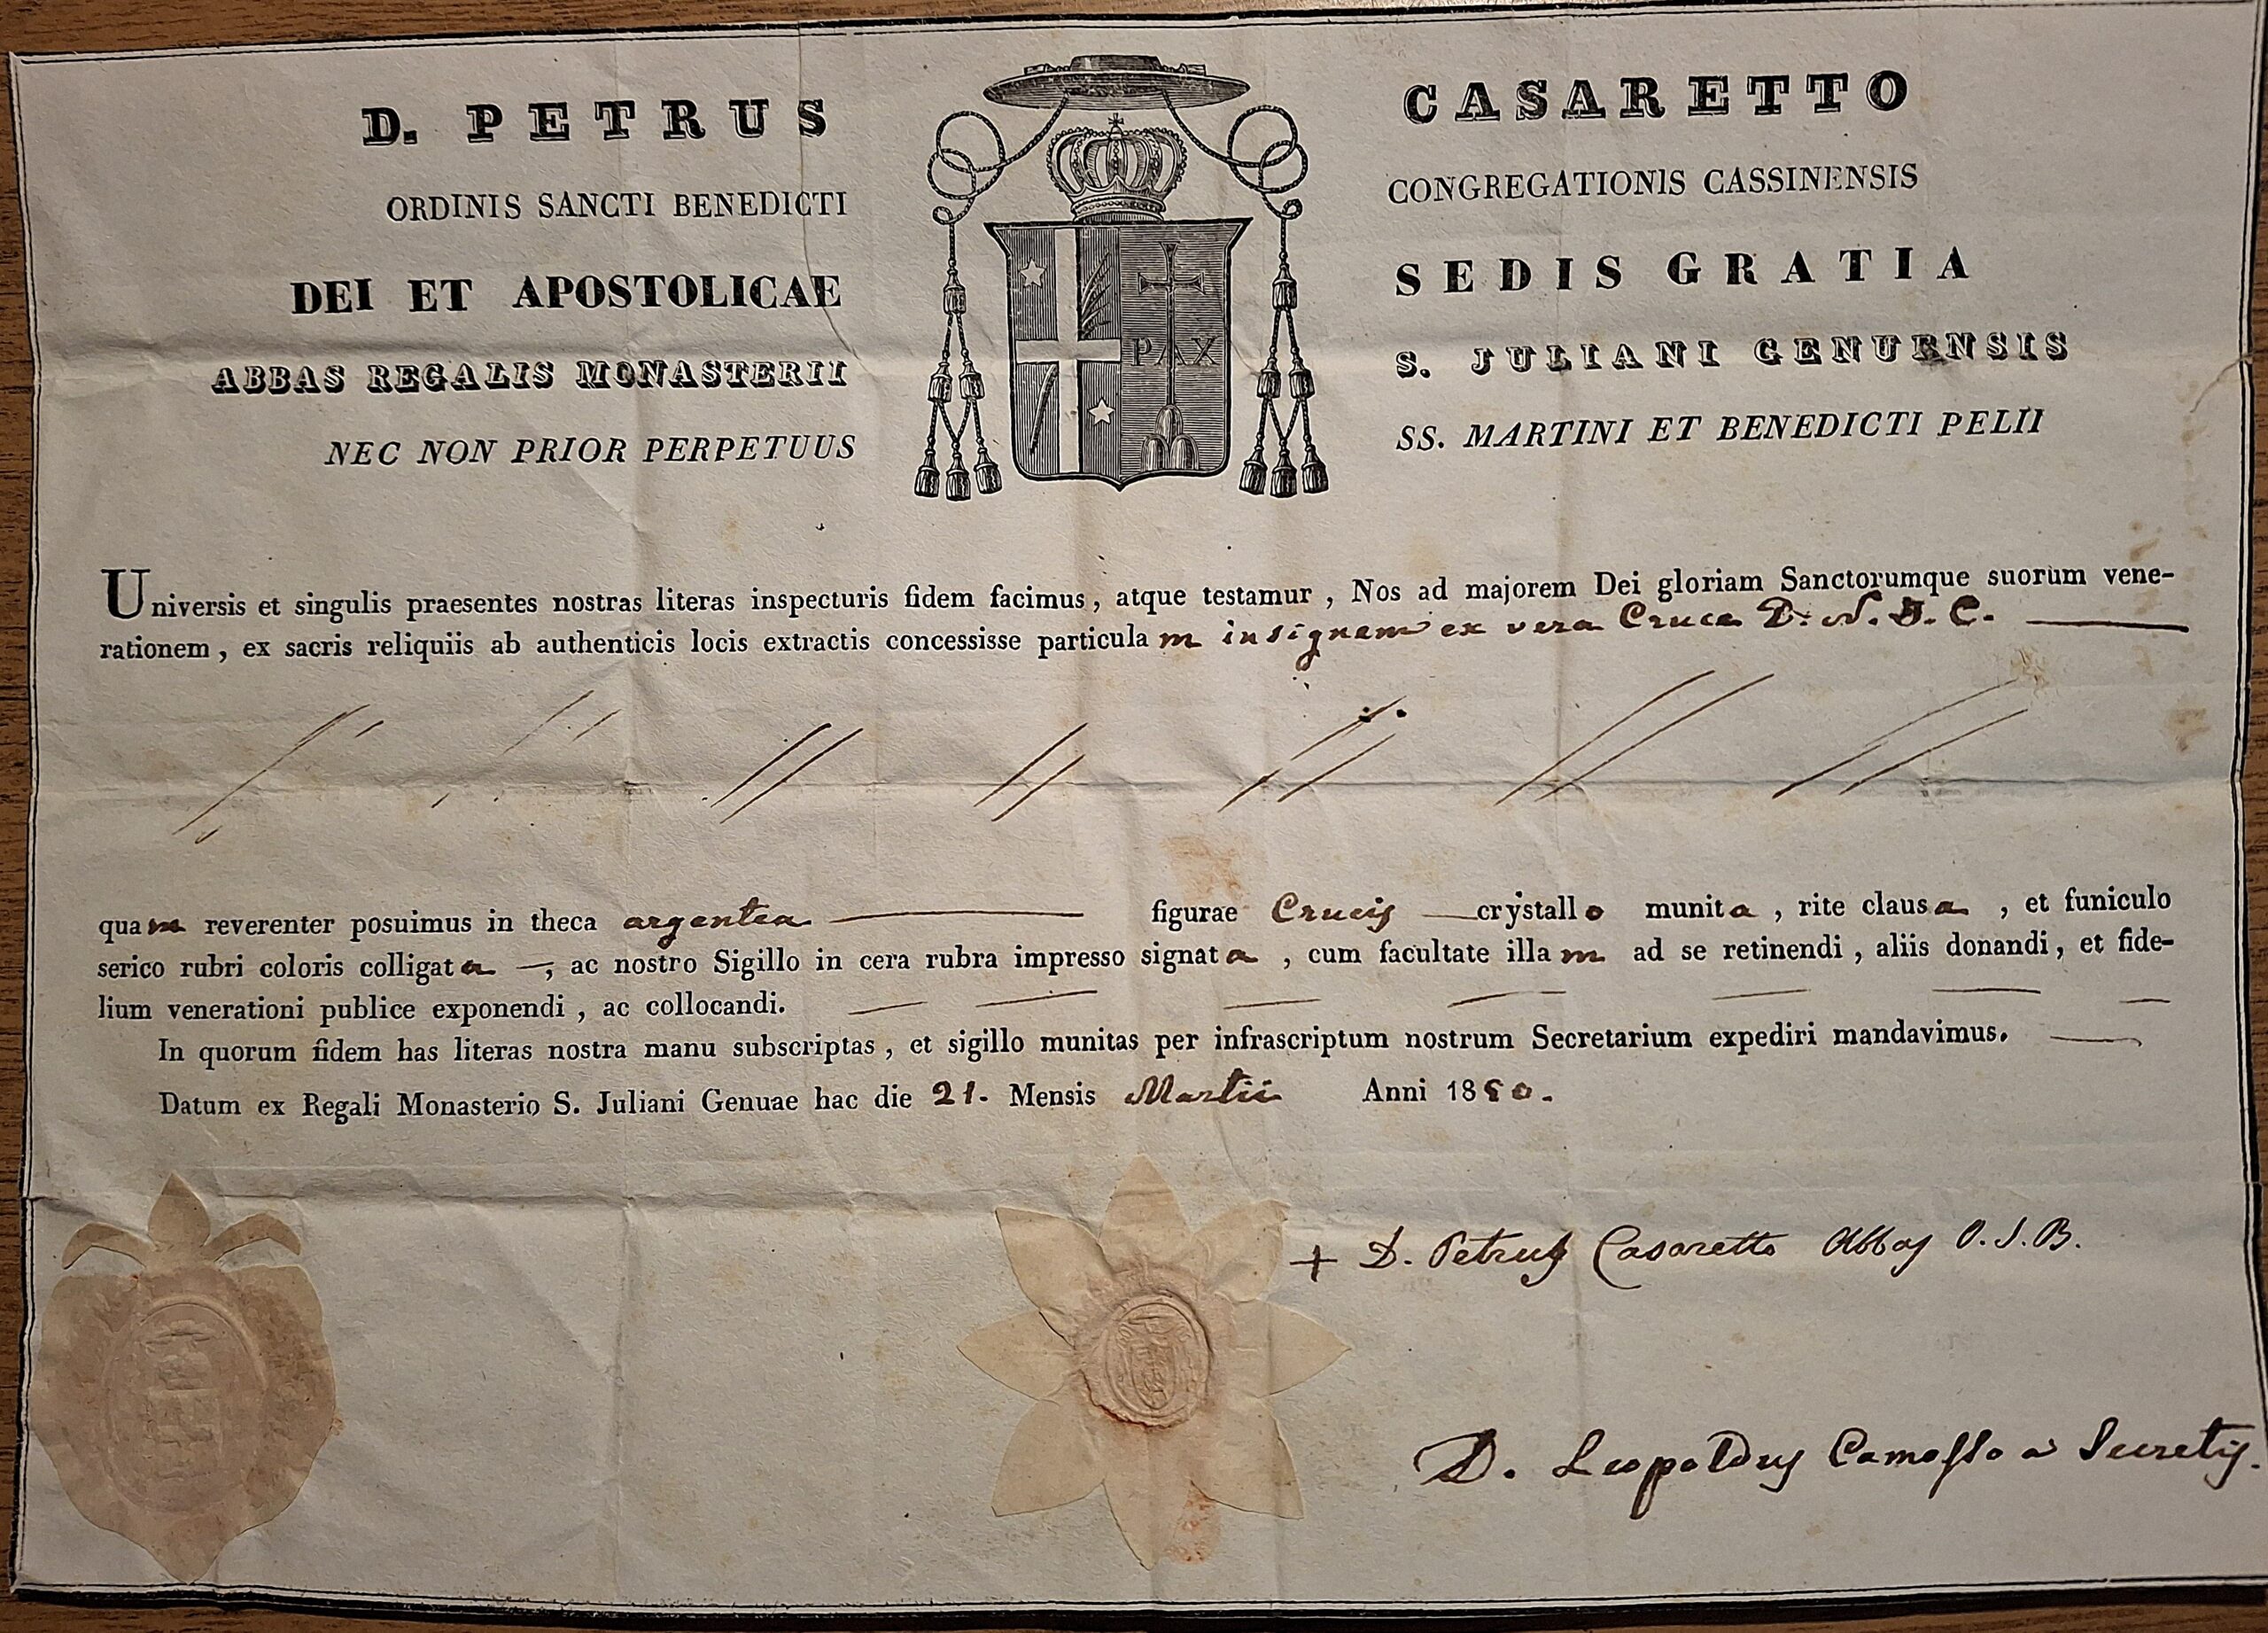 D. PETRUS CASARETTO
ORDINIS SANCTI BENEDICTI CONGREGATIONIS CASSINENSIS
DEI ET APOSTOLICAE SEDIS GRATIA
ABBAS REGALIS MONASTERII S. JULIANI GENUENSIS
NEC NON PRIOR PERPETUUS SS. MARTINI ET BENEDICTI PELII
PAX
Universis et singulis praesentes nostras literas inspecturis fidem facimus, atque testamur, Nos ad majorem Dei gloriam Sanctorumque suorum vene-
rationem, ex sacris reliquiis ab authenticis locis extractis concessisse particulam insignem ex vera Cruce D. N. J. C.
quam reverenter posuimus in theca argentea figurae Crucis crystallo munita, rite clausa, et funiculo
serico rubri coloris colligata, ac nostro Sigillo in cera rubra impresso signata, cum facultate illam ad se retinendi, aliis donandi, et fide-
lium venerationi publice exponendi, ac collocandi.
In quorum fidem has literas nostra manu subscriptas, et sigillo munitas per infrascriptum nostrum Secretarium expediri mandavimus.
Datum ex Regali Monasterio S. Juliani Genuae hac die 21. Mensis Martii Anni 1850.
+ D. Petrus Casaretto Abbas O. S. B.
D. Leopoldus Camosso a Secretis.